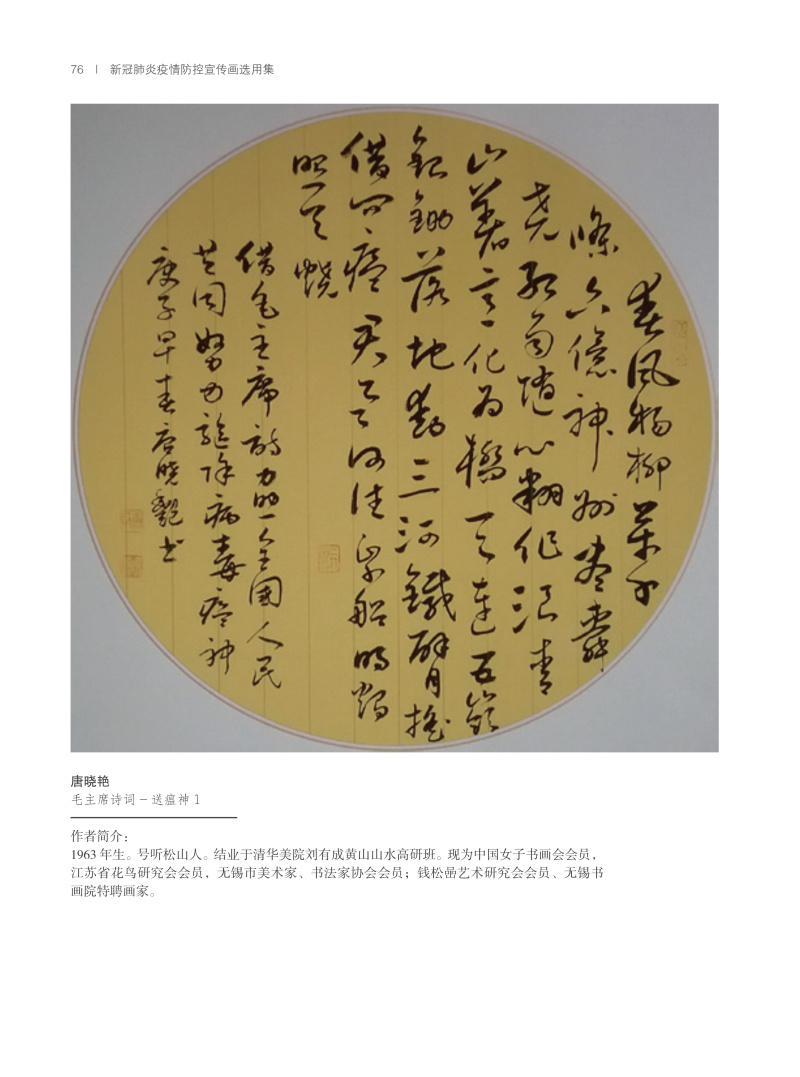 76 | 新冠肺炎疫情防控宣传画选用集
春风楊柳萬千
條六億神州盡舜
堯红雨随心翻作浪青
山著意化为橋天连五嶺
銀鋤落地動三河鐵臂搖
借问瘟君欲何往纸船明燭
照天燒
借毛主席诗力照全國人民
共同努力驱除病毒瘟神
庚子早春唐晓艷书
唐晓艳
毛主席诗词 – 送瘟神 1
作者简介：
1963 年生。号听松山人。结业于清华美院刘有成黄山山水高研班。现为中国女子书画会会员，
江苏省花鸟研究会会员，无锡市美术家、书法家协会会员；钱松喦艺术研究会会员、无锡书
画院特聘画家。